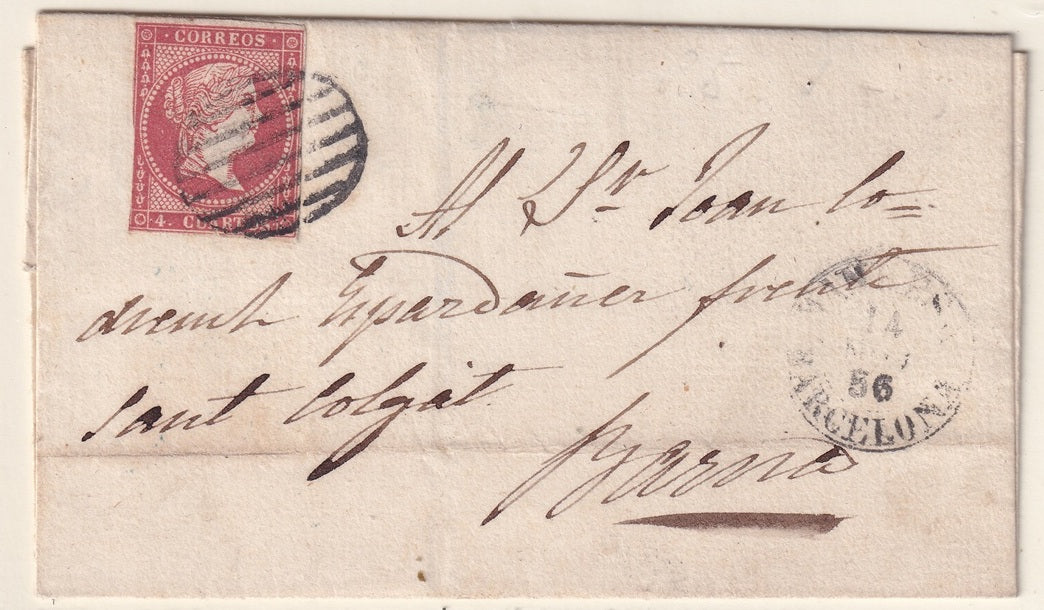 CORREOS
4. CU
Al Sr Joan Co=
drench Espardañer frente
Sant Colgát
Barna
14
56
BARCELONA